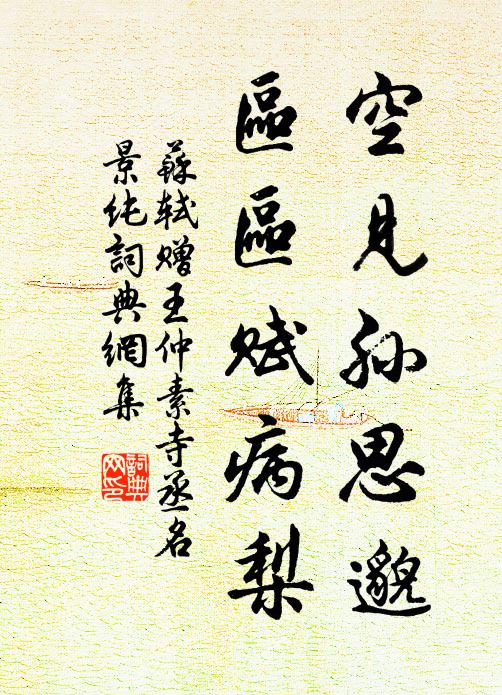 空見孙思邈
區區赋病梨
蘇軾赠王仲素寺丞名
景纯詞典網集
詞典网印